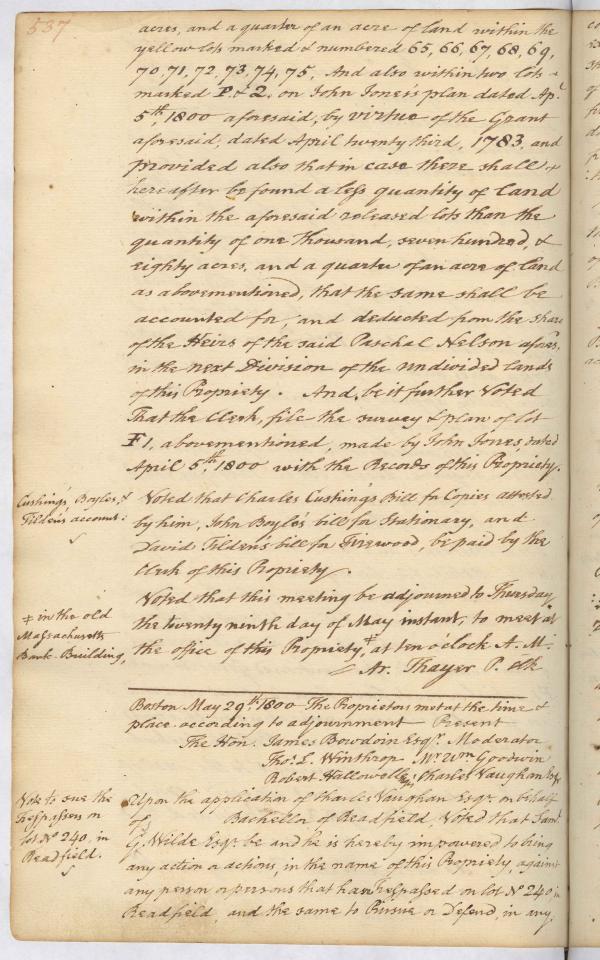 537
acres, and a quarter of an acre of land within the
yellow lots marked & numbered 65, 66, 67, 68, 69,
70, 71, 72, 73, 74, 75, And also within two lots
marked P & 2, on John Jones's plan dated Apl
5th, 1800 aforesaid, by virtue of the Grant
aforesaid, dated April twenty third, 1783, and
provided also that in case there shall
hereafter be found a less quantity of land
within the aforesaid released lots than the
quantity of one thousand, seven hundred, &
eighty acres, and a quarter of an acre of land
as abovementioned, that the same shall be
accounted for, and deducted from the share
of the Heirs of the said Paschal Nelson afores.
in the next Division of the undivided lands
of this Propriety. And, be it further Voted
That the Clerk, file the survey & plan of lot
F 1, abovementioned, made by John Jones, dated
April 5th, 1800 with the Records of this Propriety.
Cushing's, Boyles, &
Tilden's account:
Voted that Charles Cushing's Bill for Copies attested
by him, John Boyle's bill for Stationary, and
David Tilden's bill for Firewood, be paid by the
Clerk of this Propriety.
Voted that this meeting be adjourned to Thursday
the twenty ninth day of May instant, to meet at
the office of this Propriety, ‡ at ten o'clock A. M.
‡ in the old
Massachusetts
Bank Building,
Ar. Thayer P. Clk
Boston May 29th 1800 The Proprietors met at the time &
place according to adjournment Present
The Hon. James Bowdoin Esqr. Moderator
Thos. L. Winthrop Mr. Wm Goodwin
Robert Hallowell Esqr. Charles Vaughan Esqr
Vote to sue the
trespassers on
lot No 240, in
Readfield.
Upon the application of Charles Vaughan Esqr. on behalf
of Bachellor of Readfield Voted that Saml.
G. Wilde Esqr. be and he is hereby impowered to bring
any action or actions, in the name of this Propriety, against
any person or persons that has trespassed on lot No 240, in
Readfield, and the same to Pursue or Defend, in any